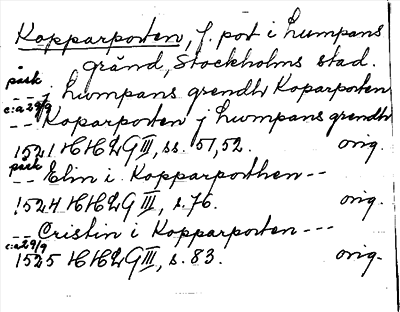 Kopparporten, f. port i Lumpans
gränd, Stockholms stad.
påsk
-- j lwmpans grendh Koparporten
c:a 29/9
-- Koparporten j lwmpans grendh
1521 HHLG III, ss. 51, 52. orig.
påsk
-- Elin i Kopparporthen --
1524 HHLG III, s. 76. orig.
-- Cristin i Kopparporten ---
c:a 29/9
1525 HHLG III, s. 83. orig.